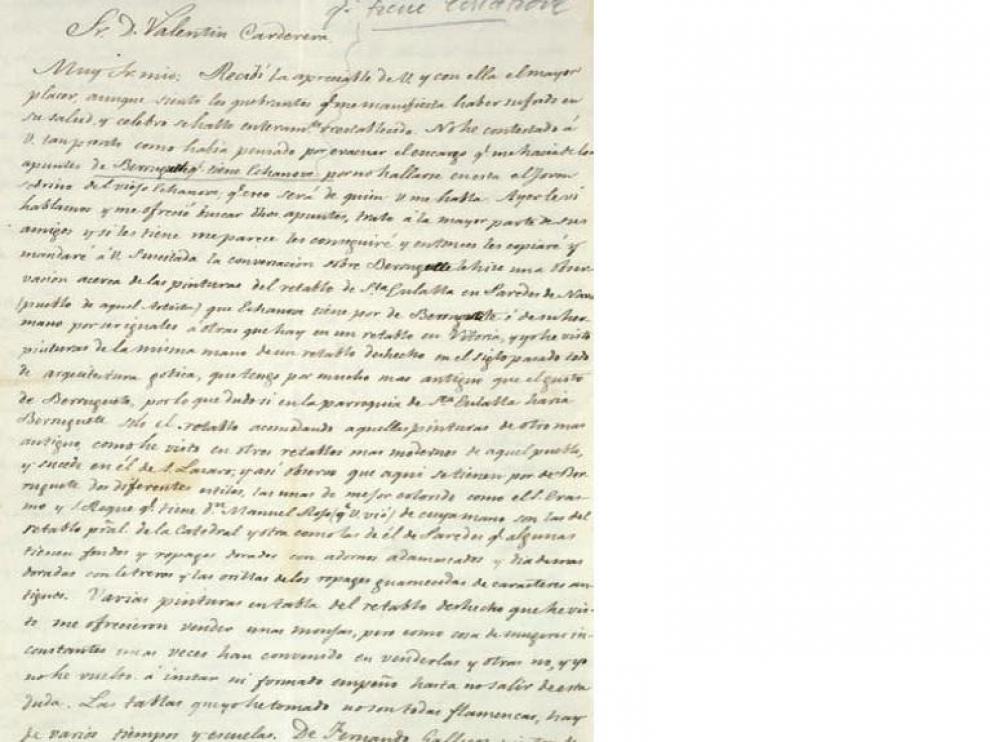 qe. tiene Echanove
Sr. D. Valentin Carderera
Muy Sr. mio: Recibí la apreciable de U. y con ella el mayor
placer, aunque siento los quebrantos qe. me manifiesta haber sufrido en
su salud, y celebro se halle enteramte. restablecido. No he contestado á
V. tan pronto como habia pensado por evacuar el encargo qe. me hacia de los
apuntes de Berruguete qe. tiene Echanove por no hallarse en esta el Joven
sobrino del viejo Echanove, qe. creo será de quien V. me habla. Ayer le vi
hablamos y me ofreció buscar dhos apuntes, trato á la mayor parte de sus
amigos y si les tiene me parece les conseguiré y entonces les copiaré y
mandaré á U. Suscitada la conversacion sobre Berruguete le hice una obser-
vacion acerca de las pinturas del retablo de Sta. Eulalia en Paredes de Nava
(pueblo de aquel Artista) que Echanove tiene por de Berruguete ó de su her-
mano por ser iguales á otras que hay en un retablo en Vitoria, y yo he visto
pinturas de la misma mano de un retablo deshecho en el siglo pasado todo
de arquitectura gotica, que tengo por mucho mas antiguo que el gusto
de Berruguete, por lo que dudo si en la parroquia de Sta. Eulalia haria
Berruguete solo el retablo acomodando aquellas pinturas de otro mas
antiguo, como he visto en otros retablos mas modernos de aquel pueblo,
y sucede en él de S. Lazaro; y asi observo que aqui se tienen por de Ber-
ruguete dos diferentes estilos, las unas de mejor colorido como el S. Eras-
mo y S. Roque qe. tiene dn. Manuel Rojo (qe. V. vió) de cuya mano son las del
retablo pral. de la Catedral y otra como las de él de Paredes qe. algunas
tienen fondos y ropages dorados con adornos adamascados y diademas
doradas con letreros y las orillas de los ropages guarnecidas de caracteres an-
tiguos. Varias pinturas en tabla del retablo deshecho que he vis-
to me ofrecieron vender unas monjas, pero como cosa de mugeres in-
constantes unas veces han convenido en venderlas y otras no, y yo
no he vuelto á instar ni formado empeño hasta no salir de esta
duda. Las tablas que yo he tomado no son todas flamencas, hay
de varios tiempos y escuelas. De Fernando